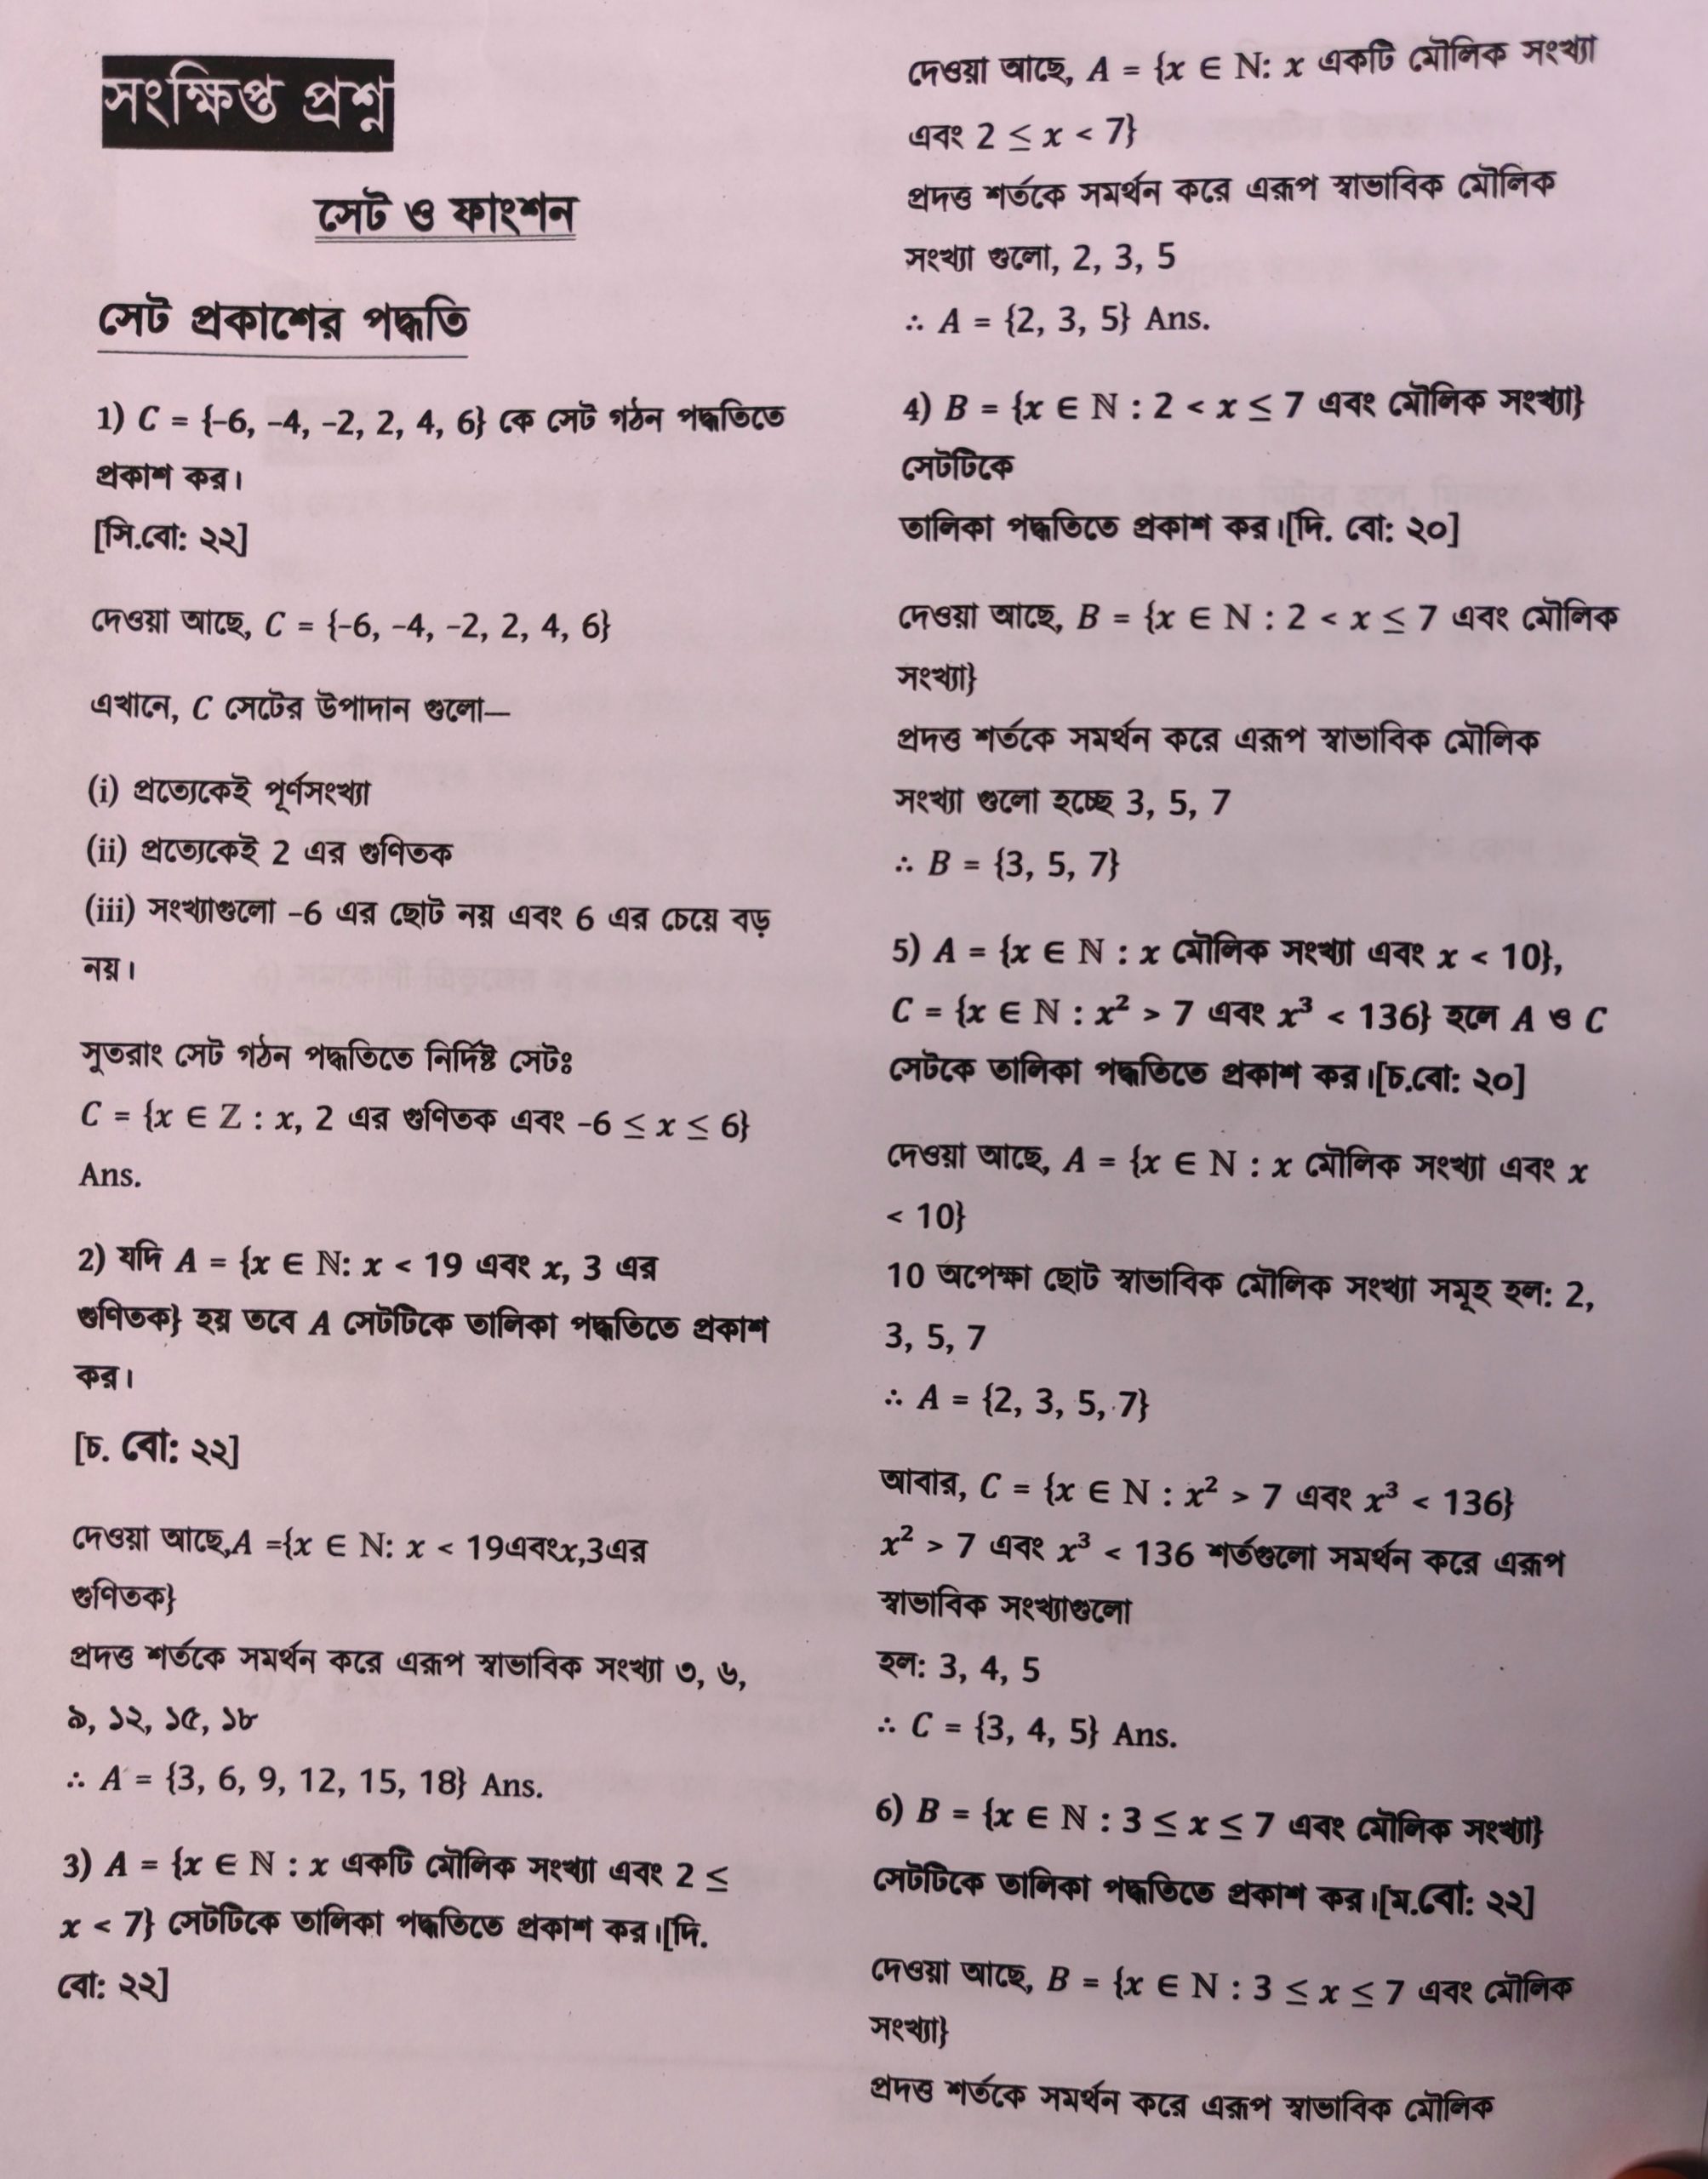 সংক্ষিপ্ত প্রশ্ন
সেট ও ফাংশন
সেট প্রকাশের পদ্ধতি
1) C = {-6, -4, -2, 2, 4, 6} কে সেট গঠন পদ্ধতিতে
প্রকাশ কর।
[সি.বো: ২২]
দেওয়া আছে, C = {-6, -4, -2, 2, 4, 6}
এখানে, C সেটের উপাদান গুলো—
(i) প্রত্যেকেই পূর্ণসংখ্যা
(ii) প্রত্যেকেই 2 এর গুণিতক
(iii) সংখ্যাগুলো -6 এর ছোট নয় এবং 6 এর চেয়ে বড়
নয়।
সুতরাং সেট গঠন পদ্ধতিতে নির্দিষ্ট সেটঃ
C = {x ∈ ℤ : x, 2 এর গুণিতক এবং -6 ≤ x ≤ 6}
Ans.
2) যদি A = {x ∈ ℕ: x < 19 এবং x, 3 এর
গুণিতক} হয় তবে A সেটটিকে তালিকা পদ্ধতিতে প্রকাশ
কর।
[চ. বো: ২২]
দেওয়া আছে,A ={x ∈ ℕ: x < 19এবংx,3এর
গুণিতক}
প্রদত্ত শর্তকে সমর্থন করে এরূপ স্বাভাবিক সংখ্যা ৩, ৬,
৯, ১২, ১৫, ১৮
∴ A = {3, 6, 9, 12, 15, 18} Ans.
3) A = {x ∈ ℕ : x একটি মৌলিক সংখ্যা এবং 2 ≤
x < 7} সেটটিকে তালিকা পদ্ধতিতে প্রকাশ কর।[দি.
বো: ২২]
দেওয়া আছে, A = {x ∈ ℕ: x একটি মৌলিক সংখ্যা
এবং 2 ≤ x < 7}
প্রদত্ত শর্তকে সমর্থন করে এরূপ স্বাভাবিক মৌলিক
সংখ্যা গুলো, 2, 3, 5
∴ A = {2, 3, 5} Ans.
4) B = {x ∈ ℕ : 2 < x ≤ 7 এবং মৌলিক সংখ্যা}
সেটটিকে
তালিকা পদ্ধতিতে প্রকাশ কর।[দি. বো: ২০]
দেওয়া আছে, B = {x ∈ ℕ : 2 < x ≤ 7 এবং মৌলিক
সংখ্যা}
প্রদত্ত শর্তকে সমর্থন করে এরূপ স্বাভাবিক মৌলিক
সংখ্যা গুলো হচ্ছে 3, 5, 7
∴ B = {3, 5, 7}
5) A = {x ∈ ℕ : x মৌলিক সংখ্যা এবং x < 10},
C = {x ∈ ℕ : x² > 7 এবং x³ < 136} হলে A ও C
সেটকে তালিকা পদ্ধতিতে প্রকাশ কর।[চ.বো: ২০]
দেওয়া আছে, A = {x ∈ ℕ : x মৌলিক সংখ্যা এবং x
< 10}
10 অপেক্ষা ছোট স্বাভাবিক মৌলিক সংখ্যা সমূহ হল: 2,
3, 5, 7
∴ A = {2, 3, 5, 7}
আবার, C = {x ∈ ℕ : x² > 7 এবং x³ < 136}
x² > 7 এবং x³ < 136 শর্তগুলো সমর্থন করে এরূপ
স্বাভাবিক সংখ্যাগুলো
হল: 3, 4, 5
∴ C = {3, 4, 5} Ans.
6) B = {x ∈ ℕ : 3 ≤ x ≤ 7 এবং মৌলিক সংখ্যা}
সেটটিকে তালিকা পদ্ধতিতে প্রকাশ কর।[ম.বো: ২২]
দেওয়া আছে, B = {x ∈ ℕ : 3 ≤ x ≤ 7 এবং মৌলিক
সংখ্যা}
প্রদত্ত শর্তকে সমর্থন করে এরূপ স্বাভাবিক মৌলিক